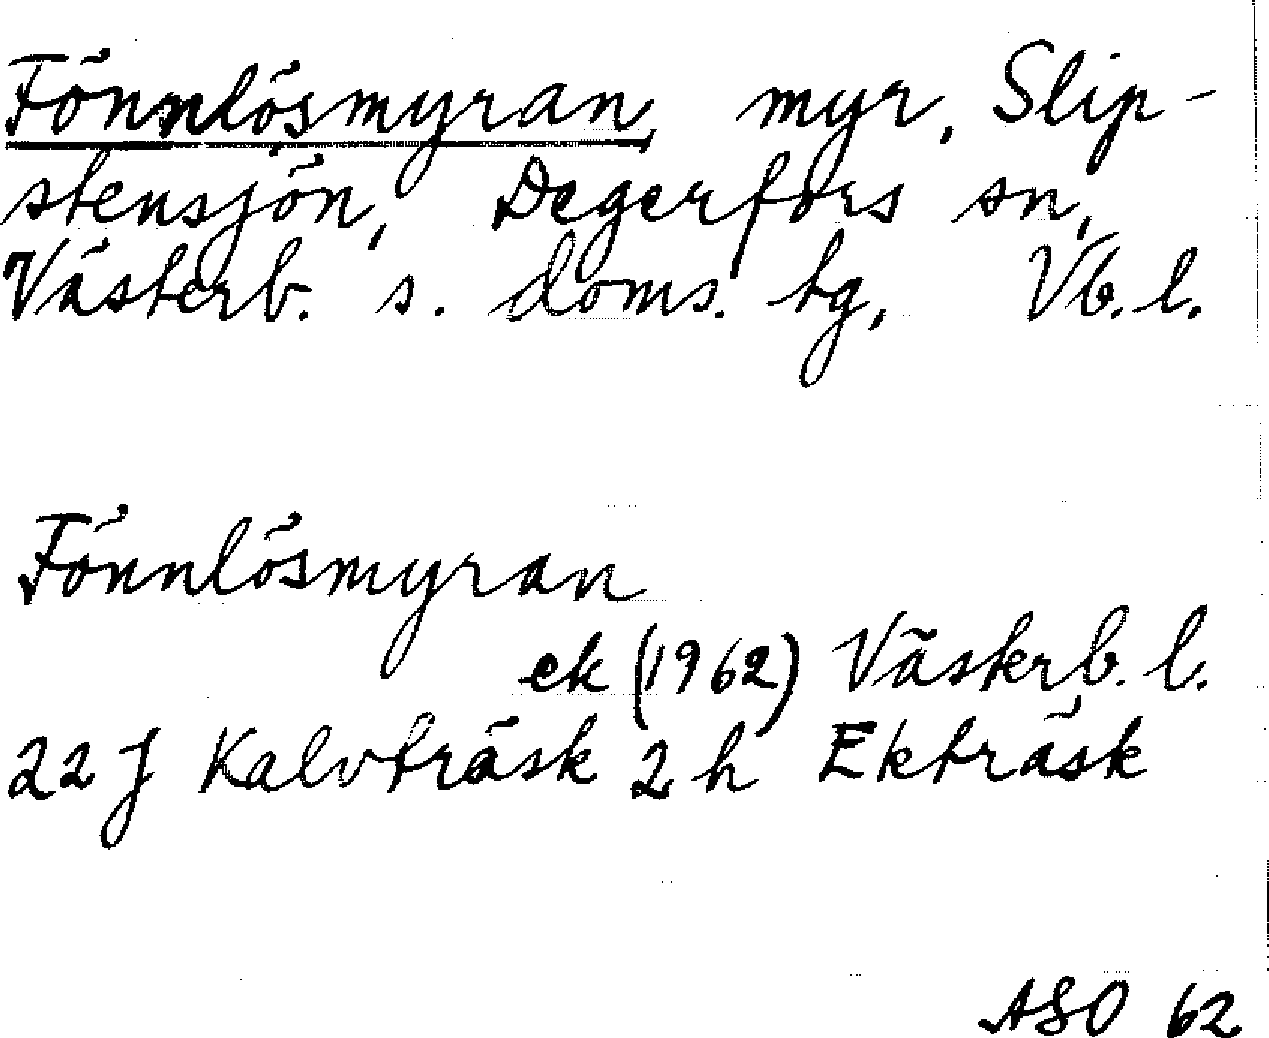 Fönnlösmyran, myr, Slip-
stensjön, Degerfors sn,
Västerb. s. doms. tg, Vb. l.
Fönnlösmyran
ek (1962) Västerb. l.
22 J Kalvträsk 2 h Ekträsk
ASO 62